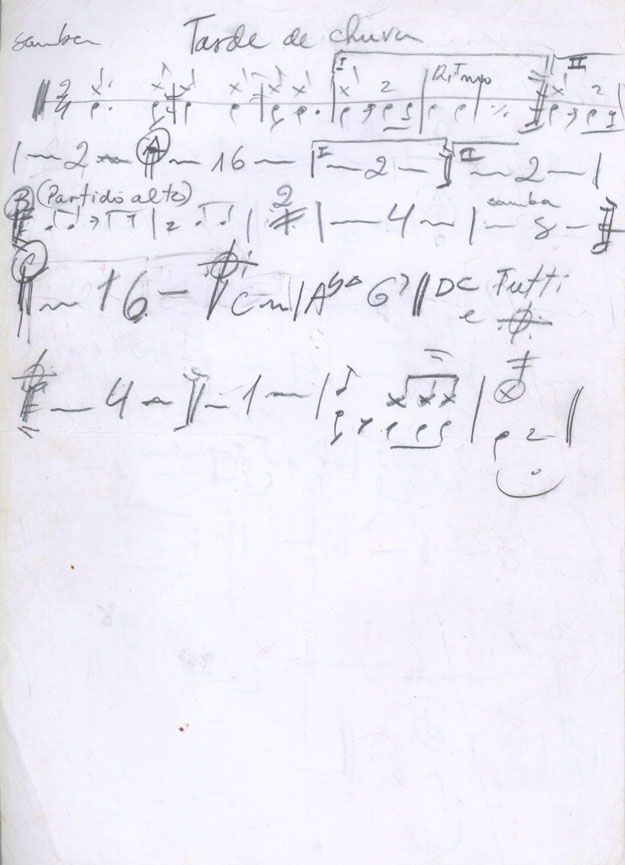 samba Tarde de chuva
I II
2 4 2 Ritmo 2
2 A 16 I 2 II 2
B (Partido alto) 2 4 samba 8
C 16 Cm Ab G7 DC Tutti
e
4 1